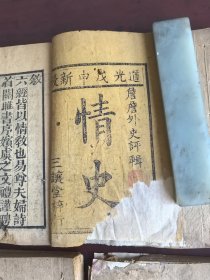 道光戊申新
詹詹外史評輯
情史
三讓堂
敘
六經皆以情教也易尊夫婦詩
首關雎書序嬪虞之文禮謹聘